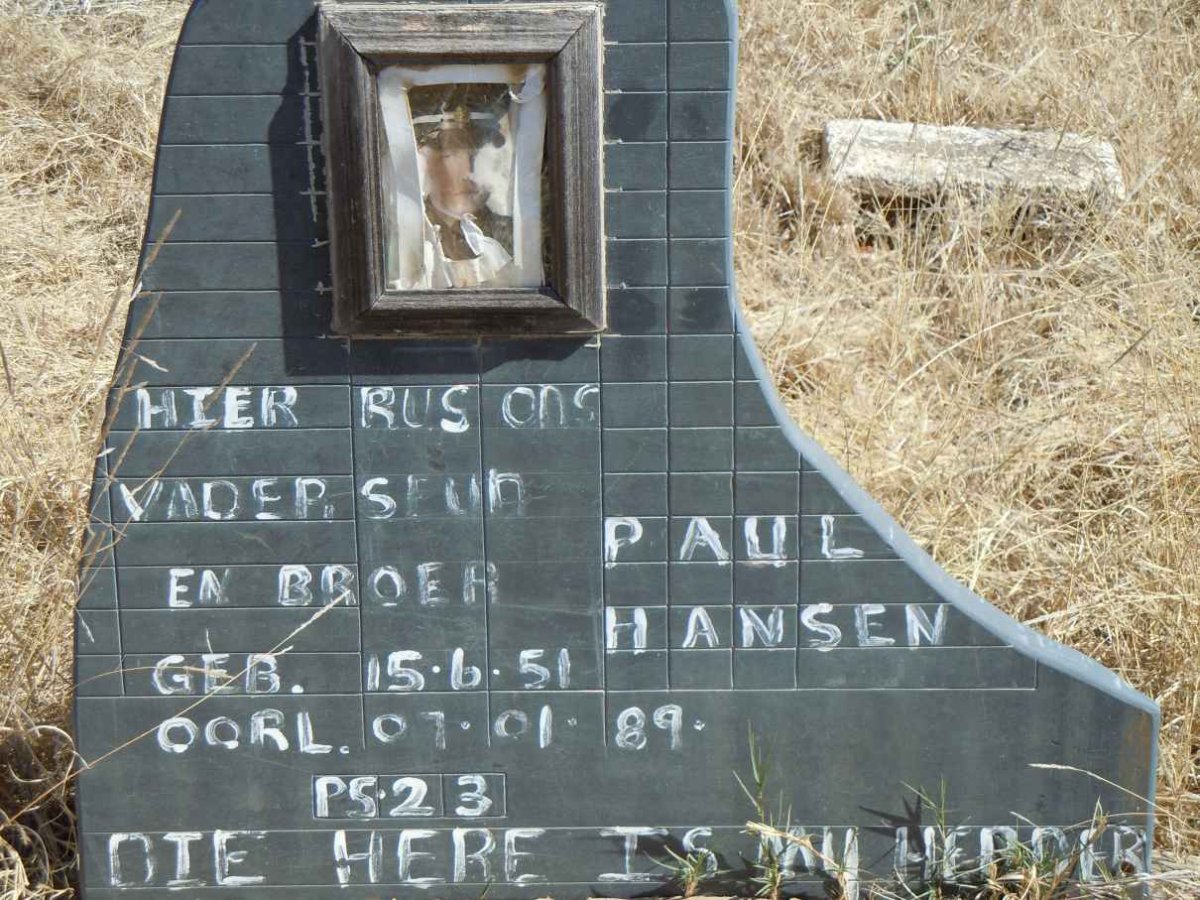 HIER RUS ONS
VADER SEUN
EN BROER
PAUL
HANSEN
GEB. 15·6·51
OORL. 07·01·89·
PS·23
DIE HERE IS MY HERDER